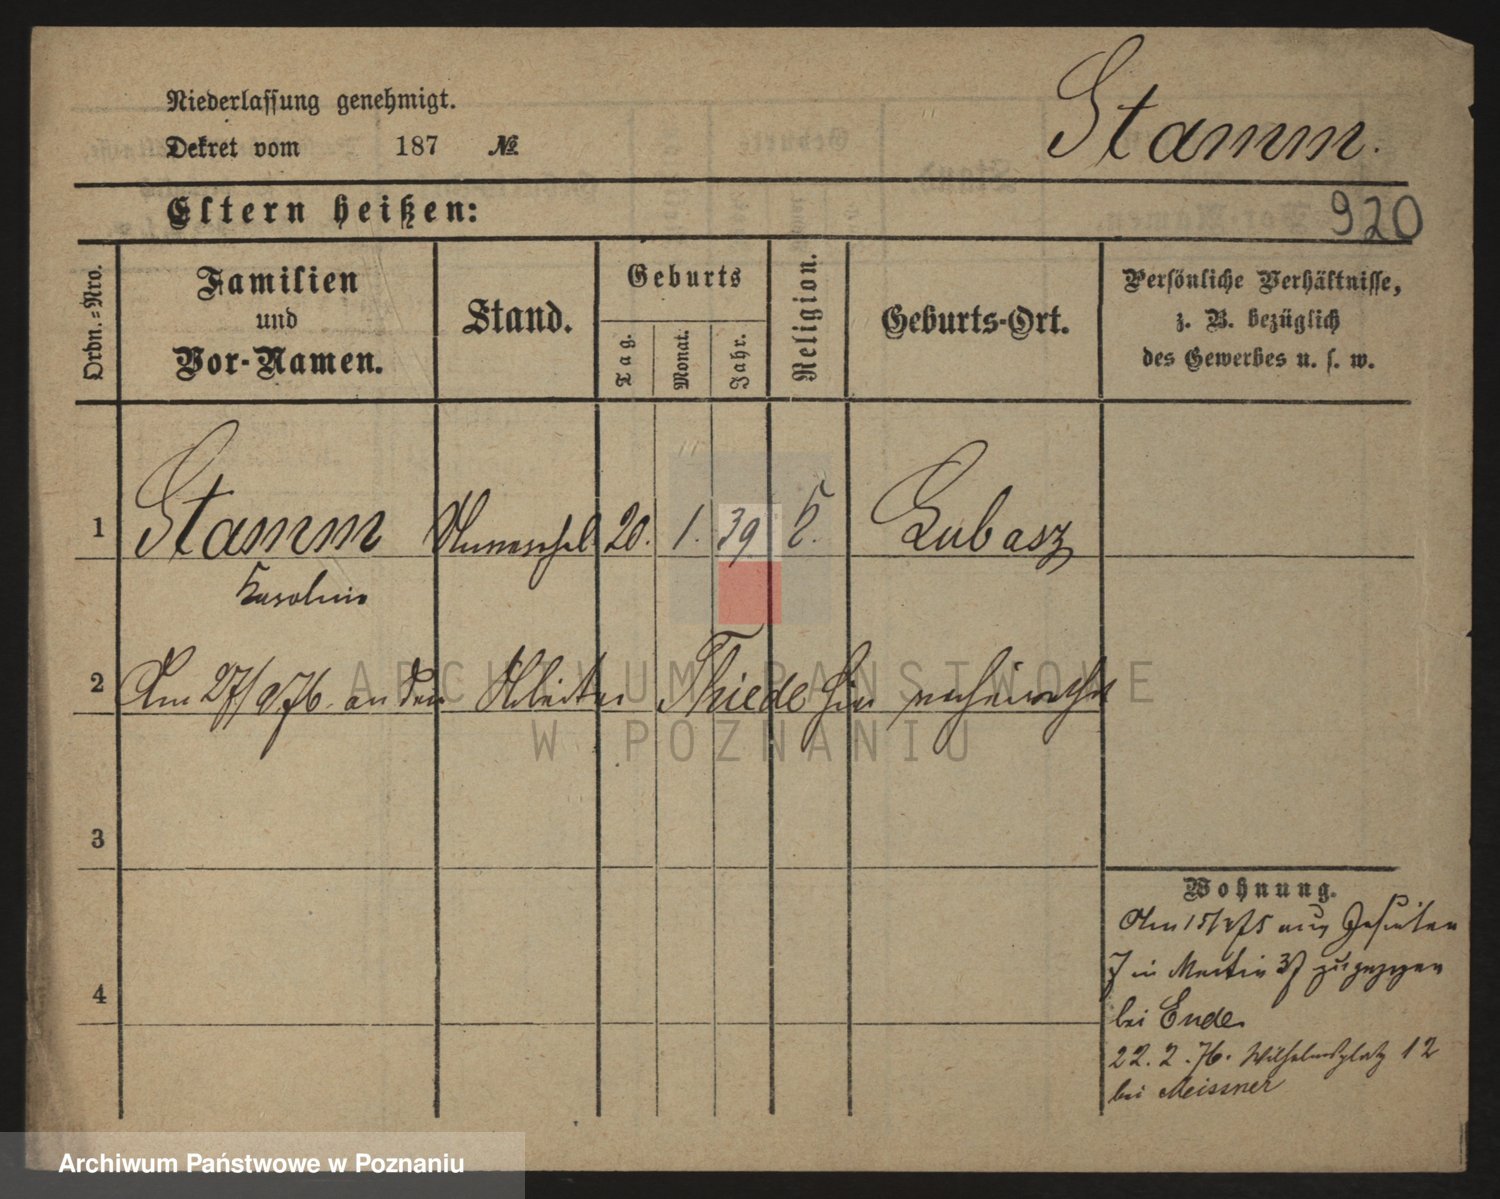 Niederlassung genehmigt.
Dekret vom 187 №
Stamm.
Eltern heißen:
920
Ordn.=Nro.
Familien
und
Vor-Namen.
Stand.
Geburts
Tag.
Monat.
Jahr.
Religion.
Geburts-Ort.
Persönliche Verhältnisse,
z. B. bezüglich
des Gewerbes u. s. w.
1 Stamm 20. 1. 39 k. Lubasz
Karolina
2 Am 27/9 76. an den Arbeiter Thiede hier verheirathet
3
4
Wohnung.
Am 15/ 75 aus Jesuiten
7 in Martin 37 zugezogen
bei Ende
22. 2. 76. Wilhelmsplatz 12
bei Meissner
ARCHIWUM PAŃSTWOWE
W POZNANIU
Archiwum Państwowe w Poznaniu